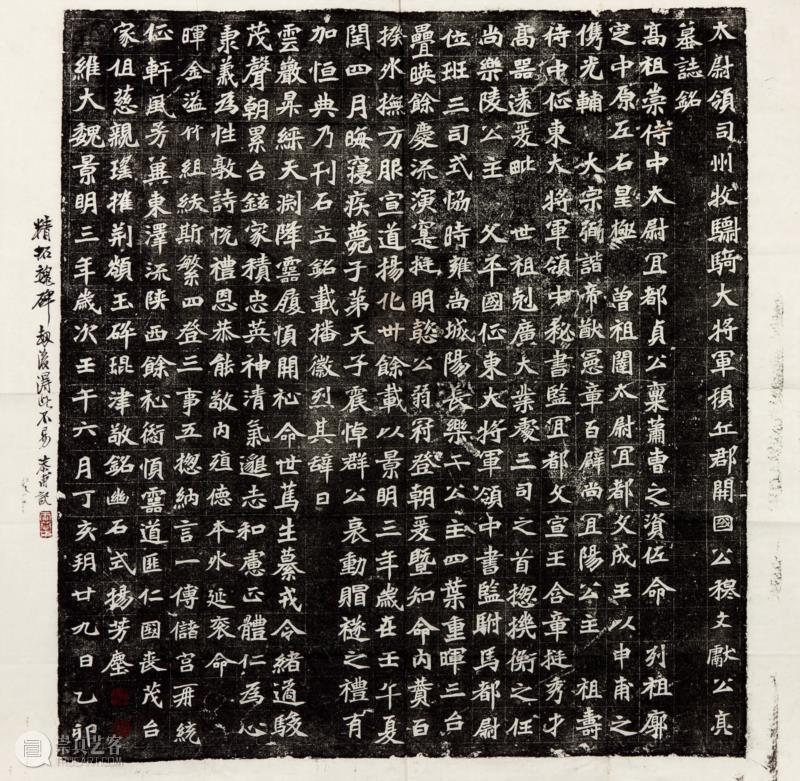 太尉領司州牧驃騎大將軍頓丘郡開國公穆文獻公亮
墓誌銘
高祖崇侍中太尉冝都貞公稟蕭曹之資佐命　列祖廓
定中原左右皇極　曾祖闥太尉冝都文成王以申甫之
儁光輔　大宗弼諧帝猷憲章百辟尚冝陽公主　祖壽
侍中征東大將軍領中秘書監冝都文宣王含章挺秀才
高器遠爰毗　世祖剋廣大業處三司之首揔機衡之任
尚樂陵公主　父平國征東大將軍領中書監駙馬都尉
位班三司式協時雍尚城陽長樂二公主四葉重暉三台
疊暎餘慶流演寔挺明懿公弱冠登朝爰暨知命內賛百
揆外撫方服宣道揚化卅餘載以景明三年歲在壬午夏
閏四月晦寢疾薨于第天子震悼群公哀動賵襚之禮有
加恒典乃刊石立銘載播徽烈其辞曰
雲巖昇綵天淵降靈履順開祉命世萬生纂戎令緒邁駿
茂聲朝累台鉉家積忠英神清氣邈志和慮正體仁為心
秉義為性敦詩悅禮恩恭能敬內殖德本外延袞命
暉金溢竹組紱斯繁四登三事五揔納言一傅儲宮再統
征軒風芳冀東澤流陝西餘祉銜慎靈道匪仁國喪茂台
家徂慈親瑤摧荊巘玉碎琨津敬銘幽石式揚芳塵
維大魏景明三年歲次壬午六月丁亥朔廿九日乙卯
精拓魏碑 劫後得此不易
崇真艺客